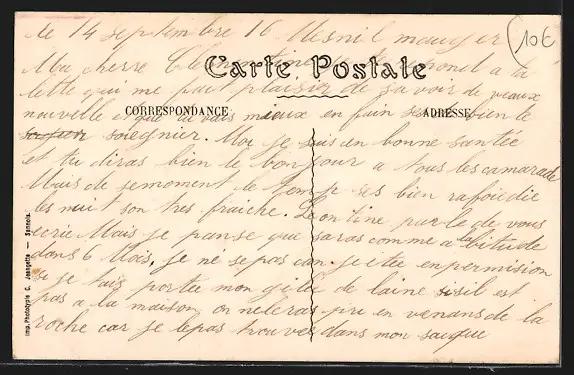 le 14 septembre 16 Mesnil mauger
10€
Ma cherre Clementine je reponds a ta
Carte Postale
lette qui me fait plaisir de savoir de veaux
CORRESPONDANCE
ADRESSE
nouville et que tu vais mieux en fuin ses bien le
soiegnier. Moi je suis en bonne santée
et tu diras bien le bonjour a tous les camarade
Mais de semoment le temp ses bien rafoiedie
les nuit son tres fraiche. Leontine parle de vous
ecrie Mais je panse que saras comme a labitude
dans 6 Mois. je ne se pas can je etée en permision
si je tais portée mon gilé de laine sisil est
pas a la maison on neleras pri en venans de la
roche car je lepas trouves dans mon saique
Imp. Photocypie C. Jeangette — Sannois.